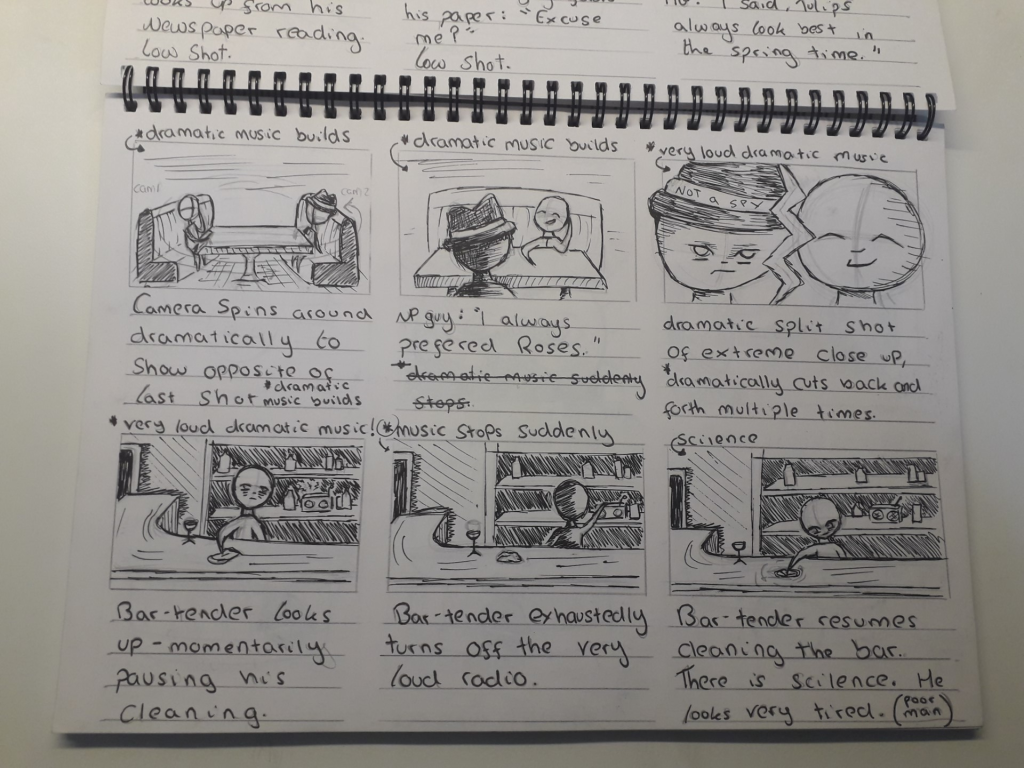 looks up from his
Newspaper reading.
Low Shot.
his paper: "Excuse
me?"
Low Shot.
I said, Tulips
always look best in
the spring time."
*dramatic music builds
cam1
cam2
Camera Spins around
dramatically to
Show opposite of
last Shot *dramatic
music builds
*dramatic music builds
NP guy: "I always
prefered Roses."
*dramatic music suddenly
stops.
*very loud dramatic music
NOT a SPY
dramatic split shot
of extreme close up,
*dramatically cuts back and
forth multiple times.
*very loud dramatic music!
Bar-tender looks
up - momentarily
pausing his
cleaning.
*music stops suddenly
Bar-tender exhaustedly
turns off the very
loud radio.
scilence
Bar-tender resumes
cleaning the bar.
There is scilence. He
looks very tired. (poor
man)